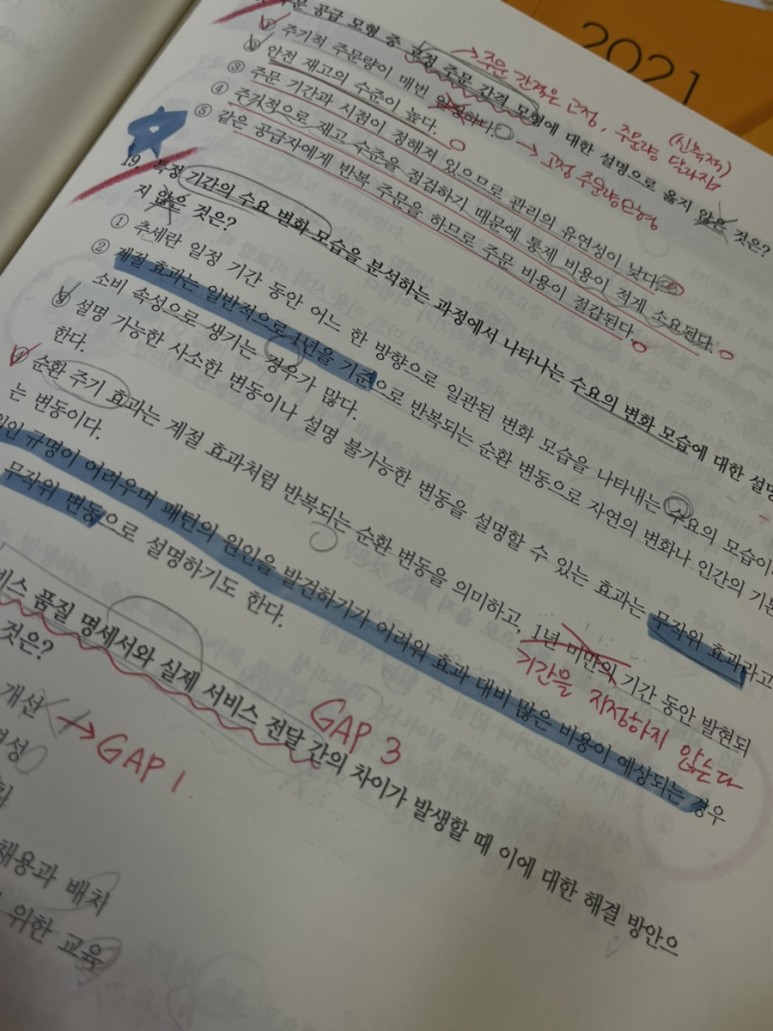 2021
공급 모형 중 고정 주문 간격 모형에 대한 설명으로 옳지 않은 것은?
→ 주문 간격은 고정, 주문량 달라짐
(신축적)
① 주기적 주문량이 매번 일정하다.
→ 고정 주문량모형
② 안전 재고의 수준이 높다.
③ 주문 기간과 시점이 정해져 있으므로 관리의 유연성이 낮다.
④ 주기적으로 재고 수준을 점검하기 때문에 통제 비용이 적게 소요된다.
⑤ 같은 공급자에게 반복 주문을 하므로 주문 비용이 절감된다.
19. 특정 기간의 수요 변화 모습을 분석하는 과정에서 나타나는 수요의 변화 모습에 대한 설명
지 않은 것은?
① 추세란 일정 기간 동안 어느 한 방향으로 일관된 변화 모습을 나타내는 수요의 모습이
② 계절 효과는 일반적으로 1년을 기준으로 반복되는 순환 변동으로 자연의 변화나 인간의 기본
소비 속성으로 생기는 경우가 많다.
③ 설명 가능한 사소한 변동이나 설명 불가능한 변동을 설명할 수 있는 효과는 무작위 효과라고
한다.
④ 순환 주기 효과는 계절 효과처럼 반복되는 순환 변동을 의미하고, 1년 미만의 기간 동안 발현되
기간을 지정하지 않는다
는 변동이다.
원인 규명이 어려우며 패턴의 원인을 발견하기가 어려워 효과 대비 많은 비용이 예상되는 경우
무작위 변동으로 설명하기도 한다.
비스 품질 명세서와 실제 서비스 전달 간의 차이가 발생할 때 이에 대한 해결 방안으
GAP 3
것은?
개선
→ GAP 1.
채용과 배치
위한 교육